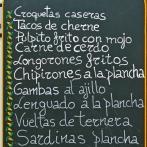 Croquetas caseras
Tacos de cherne
Pulpito frito con mojo
Carne de cerdo
Longorones fritos
Chipirones a la plancha
Gambas al ajillo
Lenguado a la plancha
Vuellas de ternera
Sardinas plancha